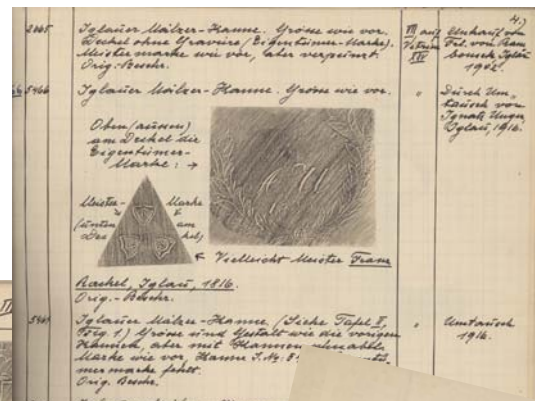 4.)
2065 Iglauer Mälzer-Kanne. Grösse wie vor.
Deckel ohne Gravüre (Eigentümer-Marke).
Meistermarke wie vor, aber
Orig.-Beschr.
VII auf
Vitrine
XIV
Ankauf von
Frl. von
Iglau
5466 Iglauer Mälzer-Kanne. Grösse wie vor.
"
Durch Um-
tausch von
Ignatz Unger,
Iglau, 1916.
Oben (aussen)
am Deckel die
Eigentümer-
Marke: →
Meister- Marke
(unten am
Deckel)
← Vielleicht Meister Franz
Rachel, Iglau, 1816.
Orig.-Beschr.
Iglauer Mälzer-Kanne. (Siehe Tafel II,
Fig. 1.) Grösse und Gestalt wie die vorigen
Kannen, aber mit Kannenschnabel.
Marke wie vor, Kanne I.N.:
mermarke fehlt.
Orig. Beschr.
"
Umtausch
1916.